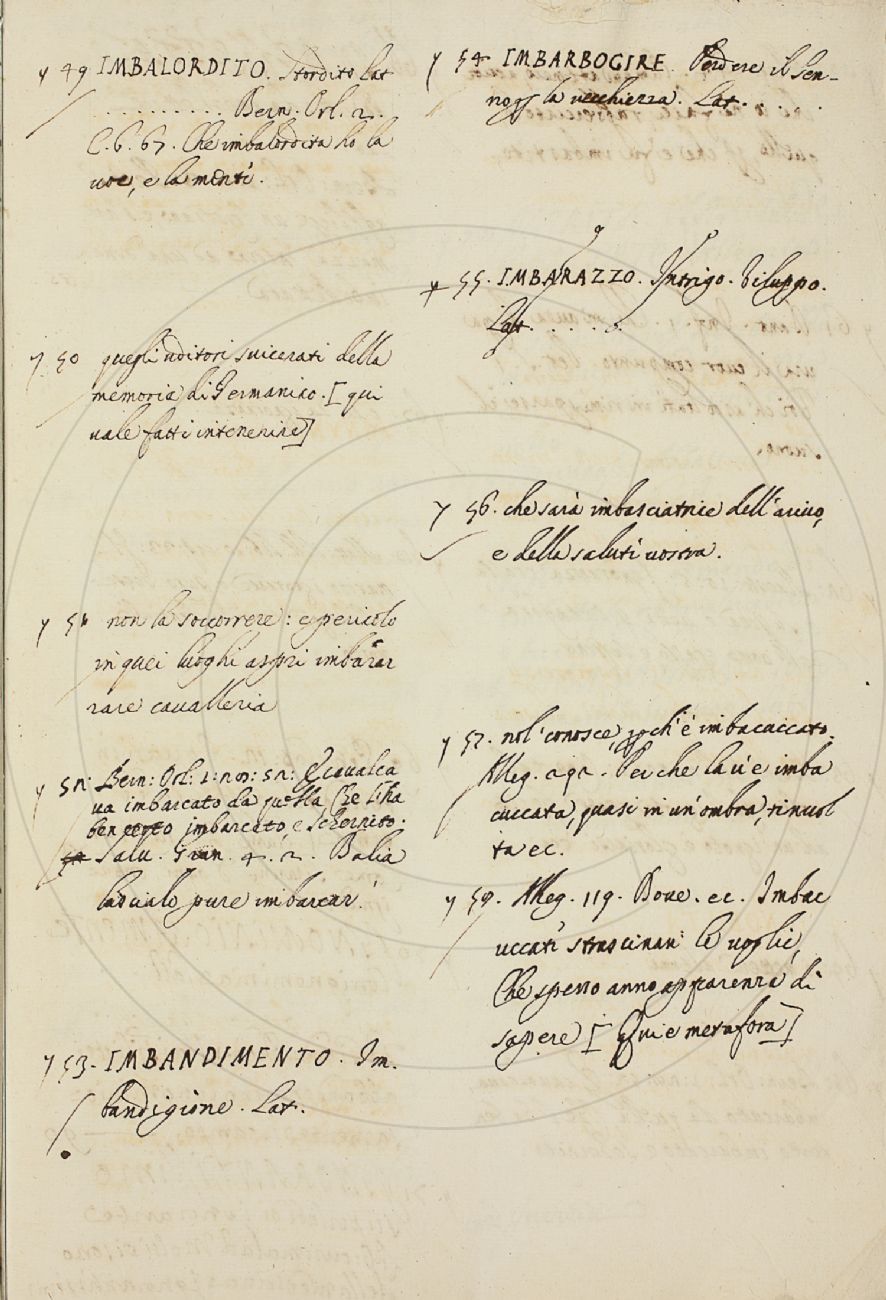 49 IMBALORDITO. Stordito Lat
. . . . . . . . . . Bern. Orl. 2.
C. 6. 67. Che imbalordita ho la
uoce, e la mente.
50 quegli uditori suicerati della
memoria di Germanico. [qui
uale fatti intenerire]
51 non la soccorrere: e pericolo
in quei luoghi aspri imbarar
rare caualleria
52: Bern: Orl: 1: 20: 52: E caualca
ua imbarcato da quella, Che l'ha
ben imbarcato, e Schernito.
Salu. Gran. 4. 2. Balia
lascialo pure imbarcar.
53. IMBANDIMENTO. Im.
bandigione. Lat.
54 IMBARBOGIRE. Perdere il sen-
no p la uecchiezza. Lat. . . .
55. IMBARAZZO. Intrigo. Viluppo.
Lat. . . . .
56. che sarà imbasciatrice dell'ariuo,
e della saluti uostra.
57. nol' conosce, pch'è imbacuccato.
Alleg. 292. Perche la u'e imba
cuccata, quasi in un'ombra, rinuol
ta ec.
59. Alleg. 119. Doue. ec. Imbac
uccati strascinan' le uoglie,
Che spesso anno apparenza di
sapere [Qui e metafora]